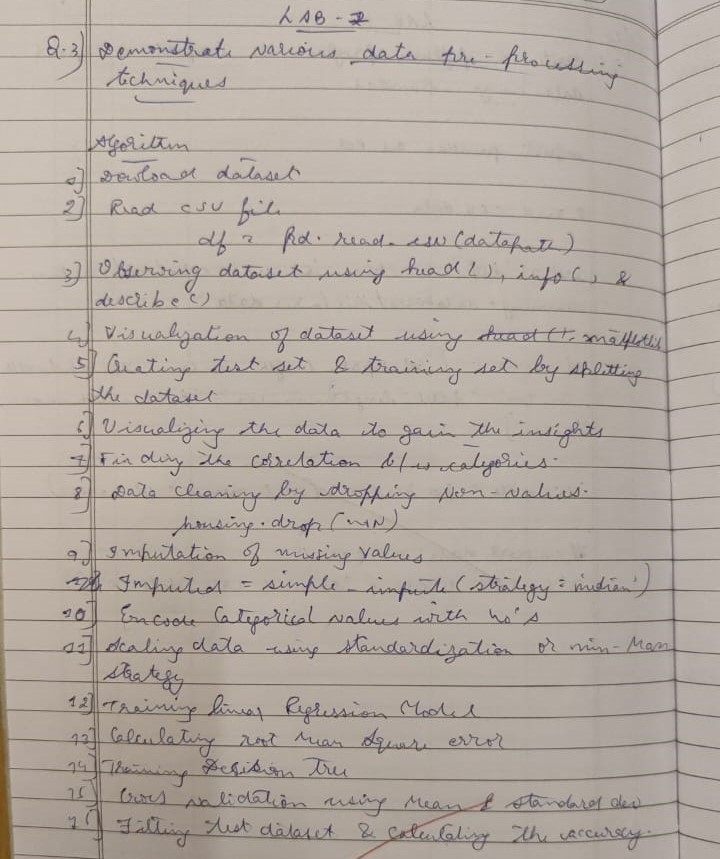 LAB-2
Q.3) Demonstrate various data pre-processing
techniques
Algorithm
1] Dowload dataset
2] Read csv file
df = pd. read_csv (datapath)
3] Observing dataset using head(), info() &
describe()
4] Visualization of dataset using head() matplotlib
5] Creating test set & training set by splitting
the dataset
6] Visualizing the data to gain the insights
7] Finding the correlation b/w categories.
8] Data cleaning by dropping Non-values.
housing.drop(NAN)
9] Imputation of missing values
Imputed = simple_impute (strategy = 'median')
10] Encode Categorical values with no's
11] Scaling data using standardization or min-Max
strategy
12] Training linear Regression Model
13] Calculating root Mean Square error
14] Training Decision Tree
15] Cross validation using Mean & standard dev
Fitting test dataset & calculating the accuracy.